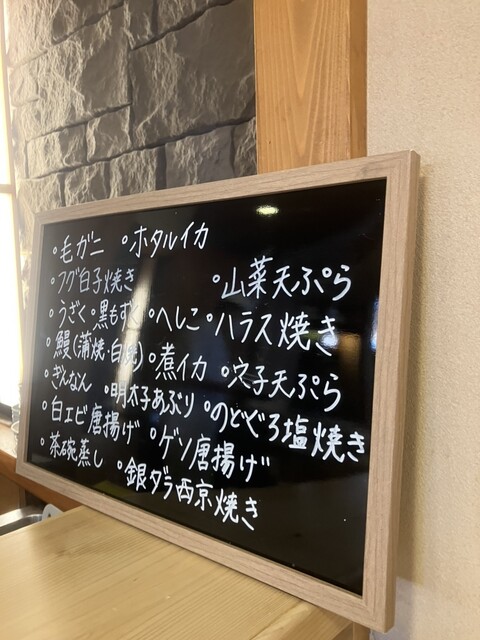 °毛ガニ °ホタルイカ
°フグ白子焼き °山菜天ぷら
°うざく °黒もずく °へしこ °ハラス焼き
°鰻(蒲焼・白焼) °煮イカ °穴子天ぷら
°ぎんなん °明太子あぶり °のどぐろ塩焼き
°白エビ唐揚げ °ゲソ唐揚げ
°茶碗蒸し °銀ダラ西京焼き